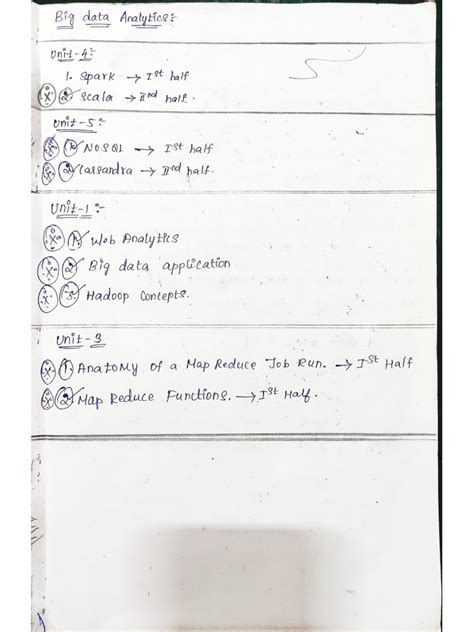 Big data Analytics:-
Unit-4:-
1. Spark → Ist half
2. Scala → IInd half.
Unit-5:-
1. NOSQL → Ist half
2. Cassandra → IInd half.
Unit-1:-
1. Web Analytics
2. Big data application
3. Hadoop Concepts.
Unit-3
1. Anatomy of a Map Reduce Job Run. → Ist Half
2. Map Reduce Functions. → Ist Half.